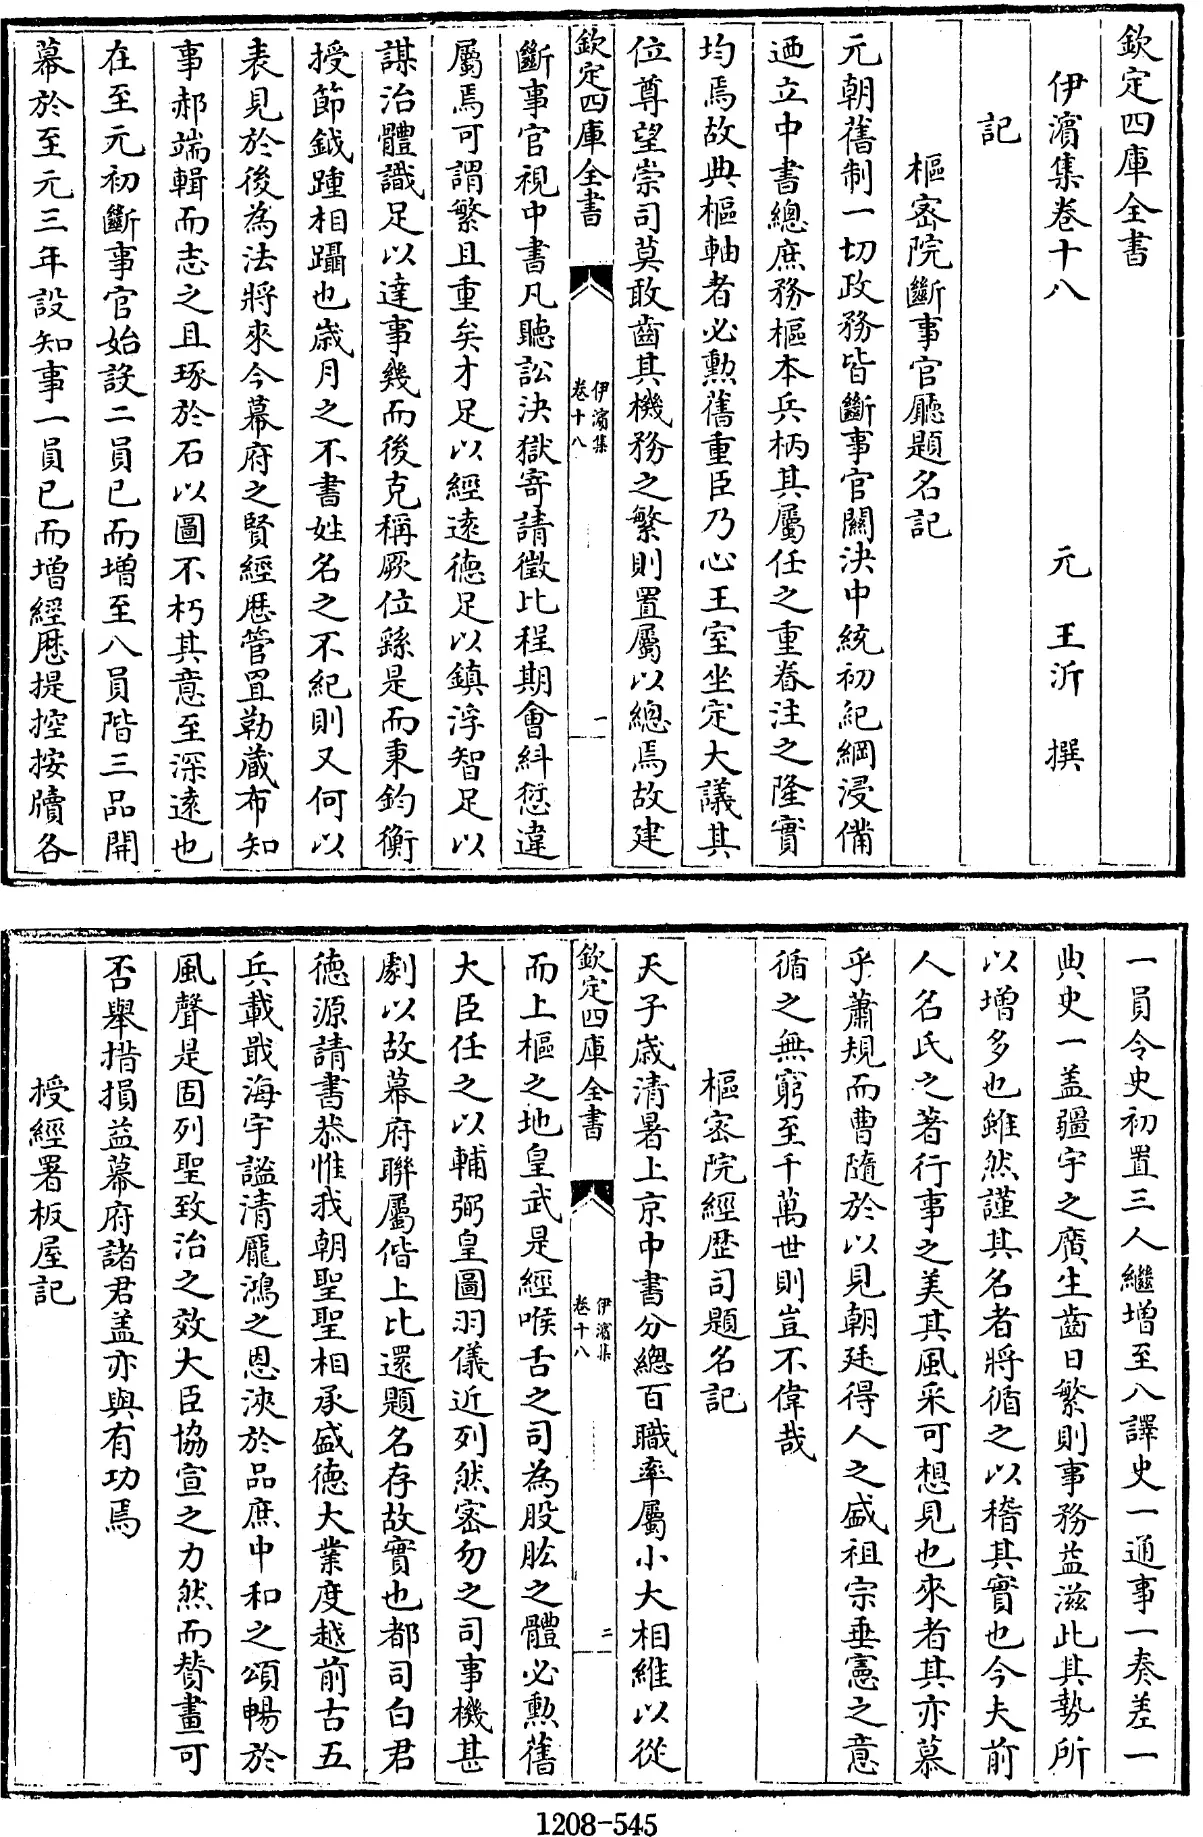 欽定四庫全書
伊濱集卷十八
元　王沂　撰
記
樞密院斷事官廳題名記
元朝舊制一切政務皆斷事官關決中統初紀綱浸備
迺立中書總庶務樞本兵柄其屬任之重眷注之隆實
均焉故典樞軸者必勲舊重臣乃心王室坐定大議其
位尊望崇司莫敢齒其機務之繁則置屬以總焉故建
欽定四庫全書
伊濱集
卷十八
一
斷事官視中書凡聽訟決獄寄請徵比程期會糾愆違
屬焉可謂繁且重矣才足以經遠徳足以鎮浮智足以
謀治體識足以達事幾而後克稱厥位繇是而秉鈞衡
授節鉞踵相躡也歲月之不書姓名之不紀則又何以
表見於後為法將來今幕府之賢經歴管罝勒蔵布知
事郝端輯而志之且琢於石以圖不朽其意至深遠也
在至元初斷事官始設二員已而增至八員階三品開
幕於至元三年設知事一員已而增經歴提控按牘各
一員令史初置三人繼增至八譯史一通事一奏差一
典史一盖疆宇之廣生齒日繁則事務益滋此其勢所
以增多也雖然謹其名者將循之以稽其實也今夫前
人名氏之著行事之美其風采可想見也來者其亦慕
乎蕭規而曹隨於以見朝廷得人之盛祖宗垂憲之意
循之無窮至千萬世則豈不偉哉
樞密院經歴司題名記
天子歲清暑上京中書分總百職率屬小大相維以從
欽定四庫全書
伊濱集
卷十八
二
而上樞之地皇武是經喉舌之司為股肱之體必勲舊
大臣任之以輔弼皇圖羽儀近列然密勿之司事機甚
劇以故幕府聯屬偕上比還題名存故實也都司白君
徳源請書恭惟我朝聖聖相承盛徳大業度越前古五
兵載戢海宇謐清龎鴻之恩浹於品庶中和之頌暢於
風聲是固列聖致治之效大臣協宣之力然而賛畫可
否舉措損益幕府諸君盖亦與有功焉
授經署板屋記
1208-545